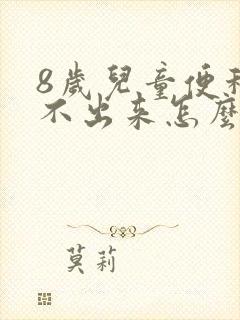 8歲兒童便
不出来怎麼
莫莉